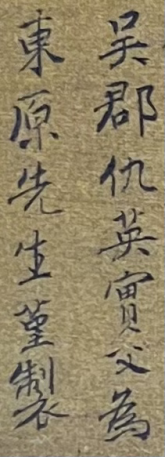 吳郡仇英實父爲
東原先生堇製